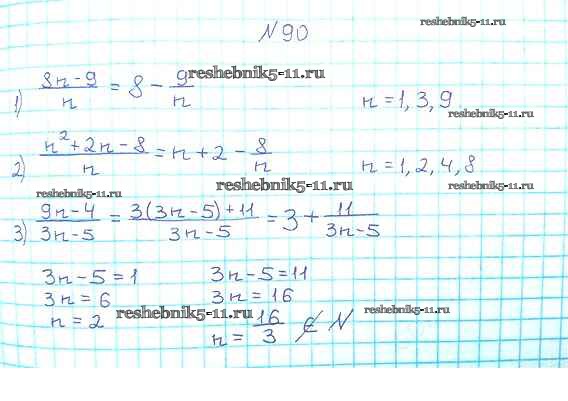 reshebnik5-11.ru
N 90
1) (8n-9)/n = 8 - 9/n reshebnik5-11.ru n = 1, 3, 9
reshebnik5-11.ru
2) (n²+2n-8)/n = n+2 - 8/n n = 1, 2, 4, 8
reshebnik5-11.ru reshebnik5-11.ru
reshebnik5-11.ru
3) (9n-4)/(3n-5) = (3(3n-5)+11)/(3n-5) = 3 + 11/(3n-5)
3n-5=1 3n-5=11
3n = 6 3n = 16
n = 2 reshebnik5-11.ru n = 16/3 ∉ N reshebnik5-11.ru